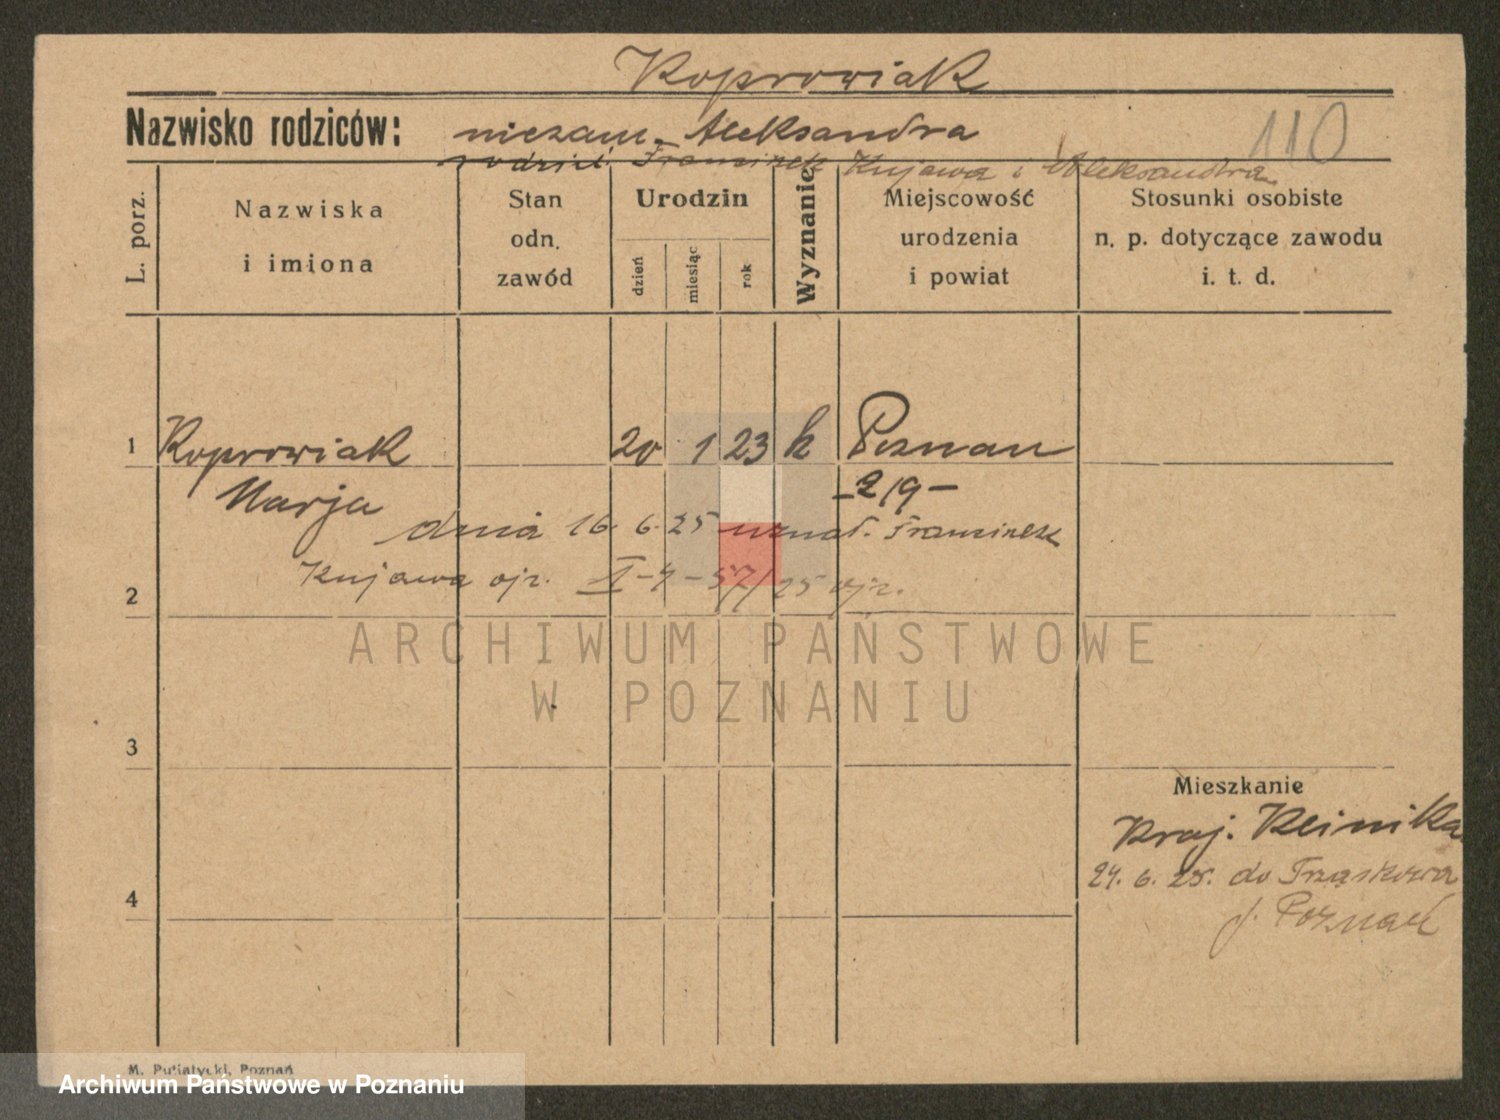 Koprowiak
Nazwisko rodziców: niezam. Aleksandra
110
rodzice Franciszek Kujawa i Aleksandra
L. porz.
Nazwiska
i imiona
Stan
odn.
zawód
Urodzin
dzień
miesiąc
rok
Wyznanie
Miejscowość
urodzenia
i powiat
Stosunki osobiste
n. p. dotyczące zawodu
i. t. d.
1 Koprowiak 20 1 23 k Poznan
Marja - 219 -
dnia 16. 6. 25 uznał. Franciszek
Kujawa ojc.
2
ARCHIWUM PAŃSTWOWE
W POZNANIU
3
Mieszkanie
Kraj. Klinika
4
24. 6. 25. do
p. Poznań
M. Putiatycki, Poznań
Archiwum Państwowe w Poznaniu